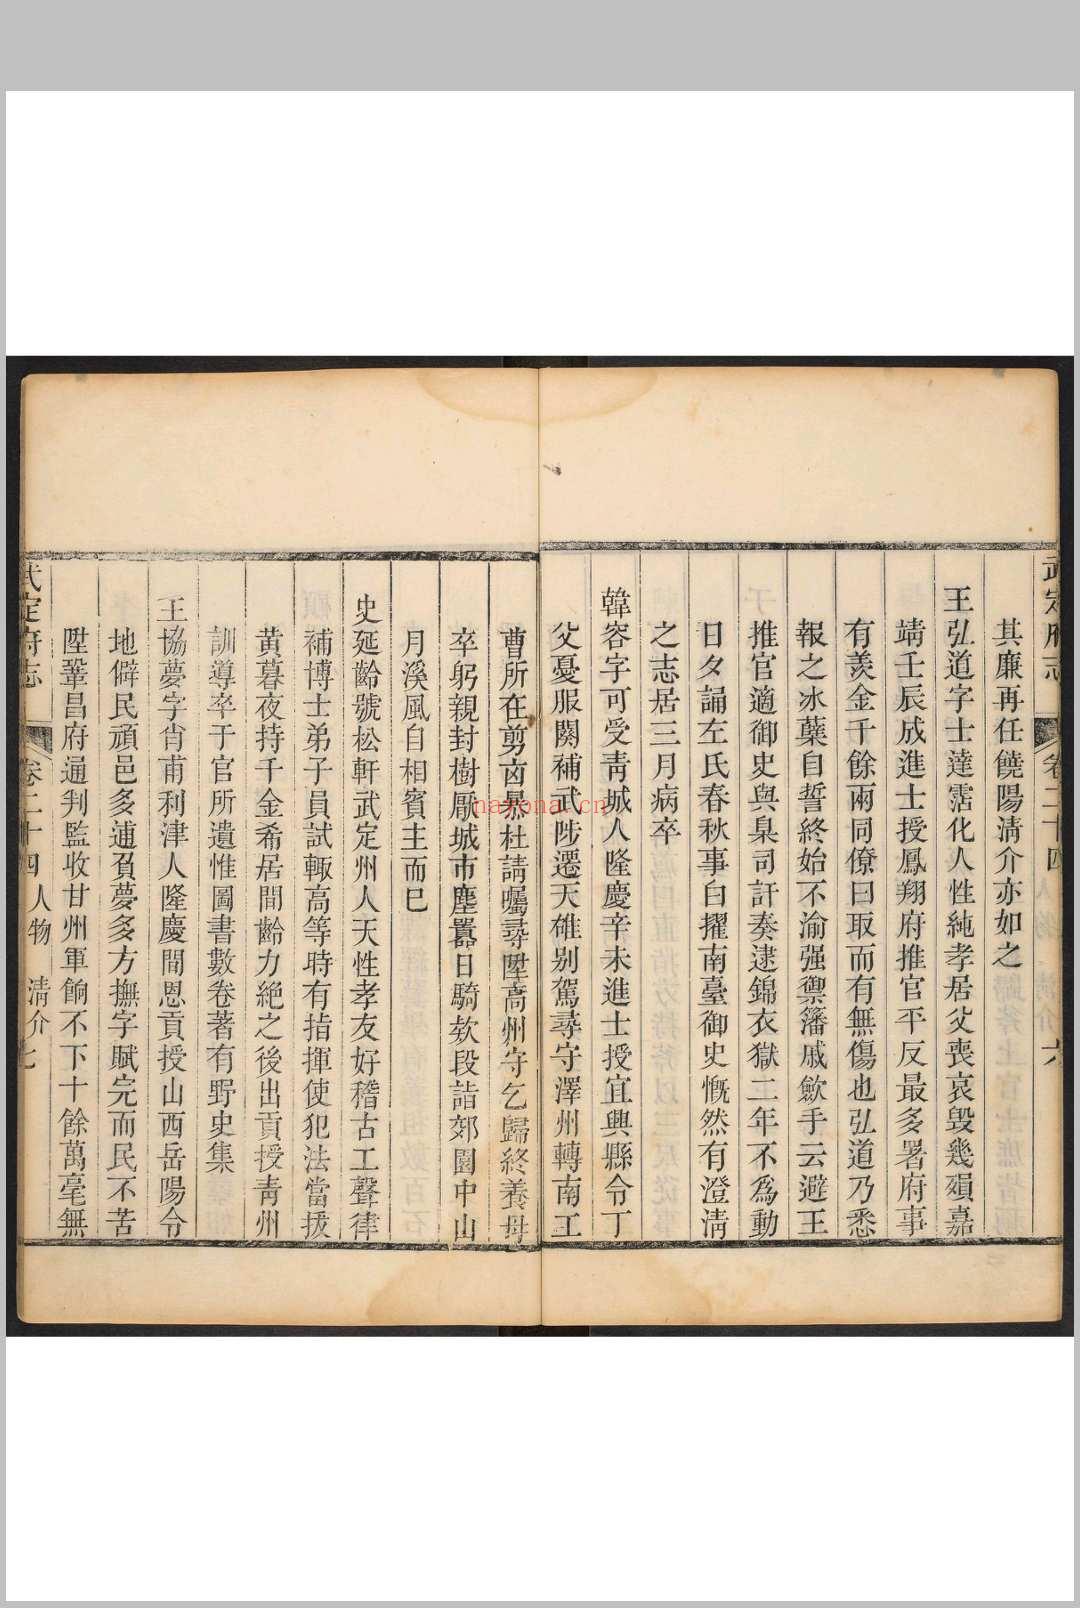 其廉再任饒陽清介亦如之
王弘道字士達霑化人性純孝居父喪哀毀幾殞嘉
靖壬辰成進士授鳳翔府推官平反最多署府事
有羨金千餘兩同僚曰取而有無傷也弘道乃悉
報之冰蘗自誓終始不渝强禦籓戚歛手云避王
推官適御史與臬司訐奏逮錦衣獄二年不為動
日夕誦左氏春秋事白擢南臺御史慨然有澄清
之志居三月病卒
韓容字可受青城人隆慶辛未進士授宜興縣令丁
父憂服闋補武陟遷天雄别駕尋守澤州轉南工
曹所在剪㐫暴杜請囑尋陞高州守乞歸終養母
卒躬親封樹厭城市塵囂日騎欵段詣郊園中山
月溪風自相賓主而已
史延齡號松軒武定州人天性孝友好稽古工聲律
補博士弟子員試輒高等時有指揮使犯法當拔
黄暮夜持千金希居間齡力絶之後出貢授青州
訓導卒于官所遺惟圖書數卷著有野史集
王協夢字肖甫利津人隆慶間恩貢授山西岳陽令
地僻民頑邑多逋負夢多方撫字賦完而民不苦
陞鞏昌府通判監收甘州軍餉不下十餘萬毫無
武定府志
卷二十四
人物 清介 七
武定府志
卷二十四
六
nayona.cn